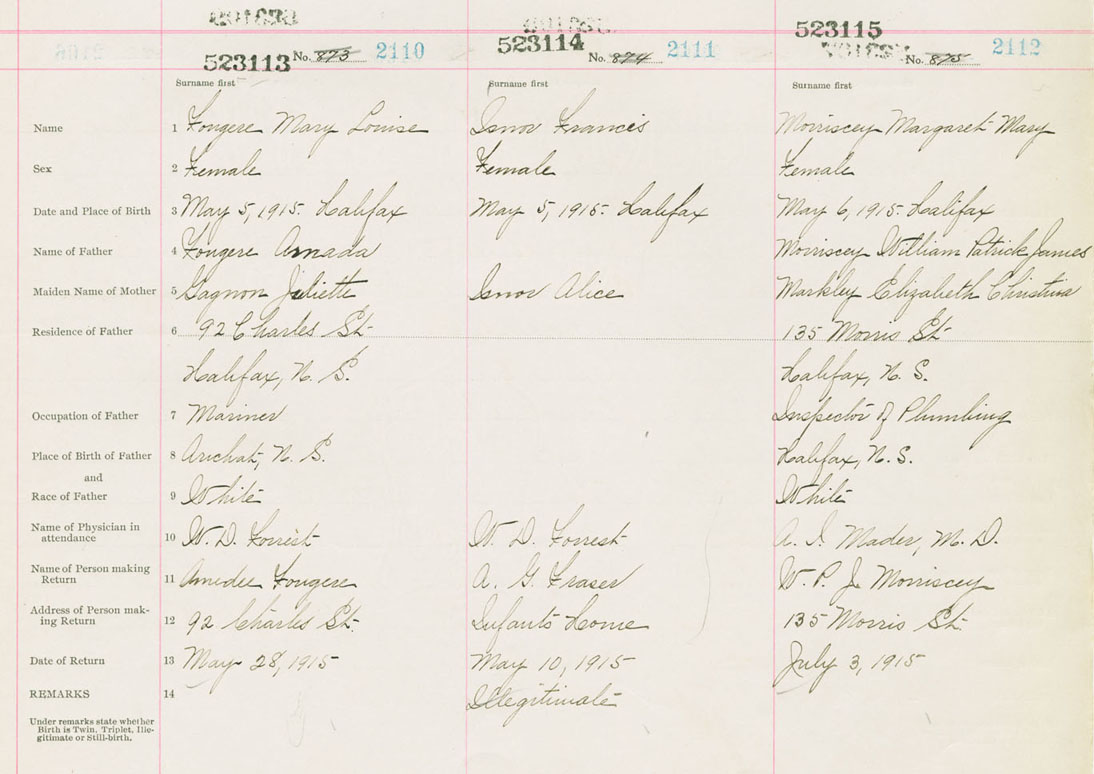 523113 No. 873 2110 523114 No. 874 2111 523115 No. 875 2112
Surname first Surname first Surname first
Name 1 Fougere Mary Louise Isnor Francis Morriscey Margaret Mary
Sex 2 Female Female Female
Date and Place of Birth 3 May 5, 1915. Halifax May 5, 1915. Halifax May 6, 1915. Halifax
Name of Father 4 Fougere Amada Morriscey William Patrick James
Maiden Name of Mother 5 Gagnon Juliette Isnor Alice Markley Elizabeth Christina
Residence of Father 6 92 Charles St 135 Morris St
Halifax, N. S. Halifax, N. S.
Occupation of Father 7 Mariner Inspector of Plumbing
Place of Birth of Father 8 Arichat, N. S. Halifax, N. S.
and
Race of Father 9 White White
Name of Physician in
attendance 10 W. D. Forrest W. D. Forrest A. I. Mader, M. D.
Name of Person making
Return 11 Amedee Fougere A. G. Fraser W. P. J. Morriscey
Address of Person mak-
ing Return 12 92 Charles St. Infants Home 135 Morris St.
Date of Return 13 May 28, 1915 May 10, 1915 July 3, 1915
REMARKS 14 Illegitimate
Under remarks state whether
Birth is Twin, Triplet, Ille-
gitimate or Still-birth.